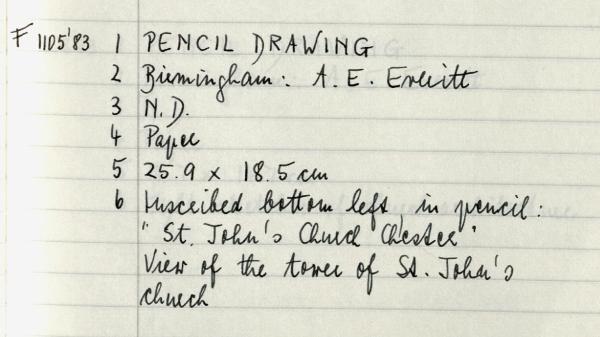 F 1105'83 1 PENCIL DRAWING
2 Birmingham: A. E. Everitt
3 N.D.
4 Paper
5 25.9 x 18.5 cm
6 Inscribed bottom left, in pencil:
"St. John's Church Chester"
View of the tower of St. John's
church